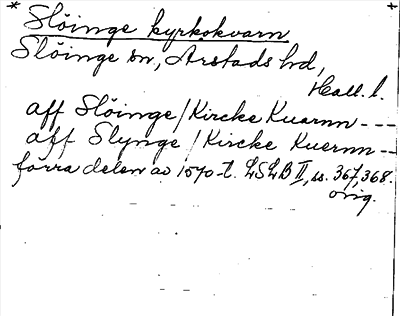 * Slöinge kyrkokvarn +
Slöinge sn, Årstads hd,
Hall. l.
aff Slöinge / Kircke Kuarnn ---
aff Slynge / Kircke Kuernn --
förra delen av 1570-t. LSLB II, ss. 367, 368.
orig.